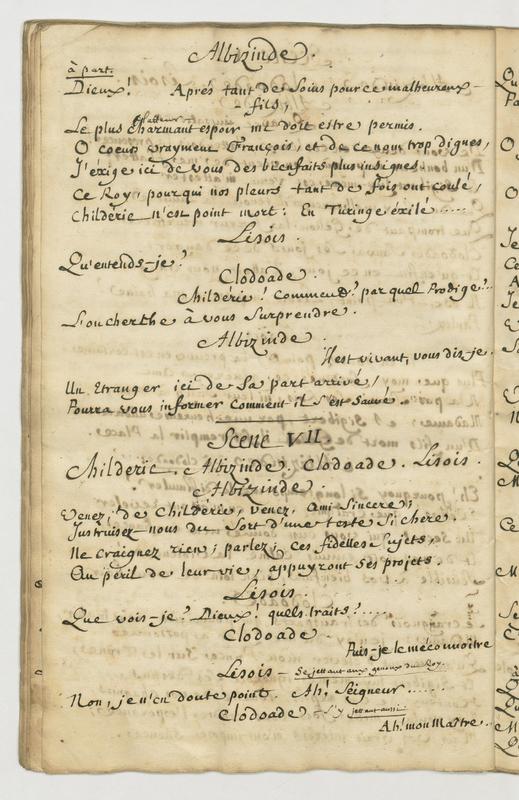 Albizinde.
à part.
Dieux! Aprés tant de Soins pour ce malheureux
fils,
flatteur
Le plus charmant espoir me doit estre permis.
O coeurs vrayment François, et de ce nom trop dignes,
J'exige ici de vous des bienfaits plus insignes.
Ce Roy, pour qui nos pleurs tant de fois ont coulé,
Childeric n'est point mort: En Turinge éxilé.....
Lisois.
Qu'entends-je?
Clodoade.
Childeric! Comment? par quel Prodige?..
L'on cherche à vous Surprendre.
Albizinde.
Il est vivant, vous dis-je.
Un Etranger ici de Sa part arrivé,
Pourra vous informer comment il s'est Sauvé.
Scene VII.
Childeric. Albizinde. Clodoade. Lisois.
Albizinde.
Venez, de Childéric, venez, Ami Sincere;
Instruisez nous du Sort d'une teste Si chere.
Ne craignez rien; parlez; ces fidelles Sujets,
Au péril de leur vie, appuyront Ses projets.
Lisois.
Que vois-je? Dieux! quels traits?.....
Clodoade.
Puis-je le méconnoitre
Lisois - Se jettant aux genoux du Roy.
Non, je n'en doute point. Ah! Seigneur......
Clodoade - S'y jettant aussi.
Ah! mon Maître..